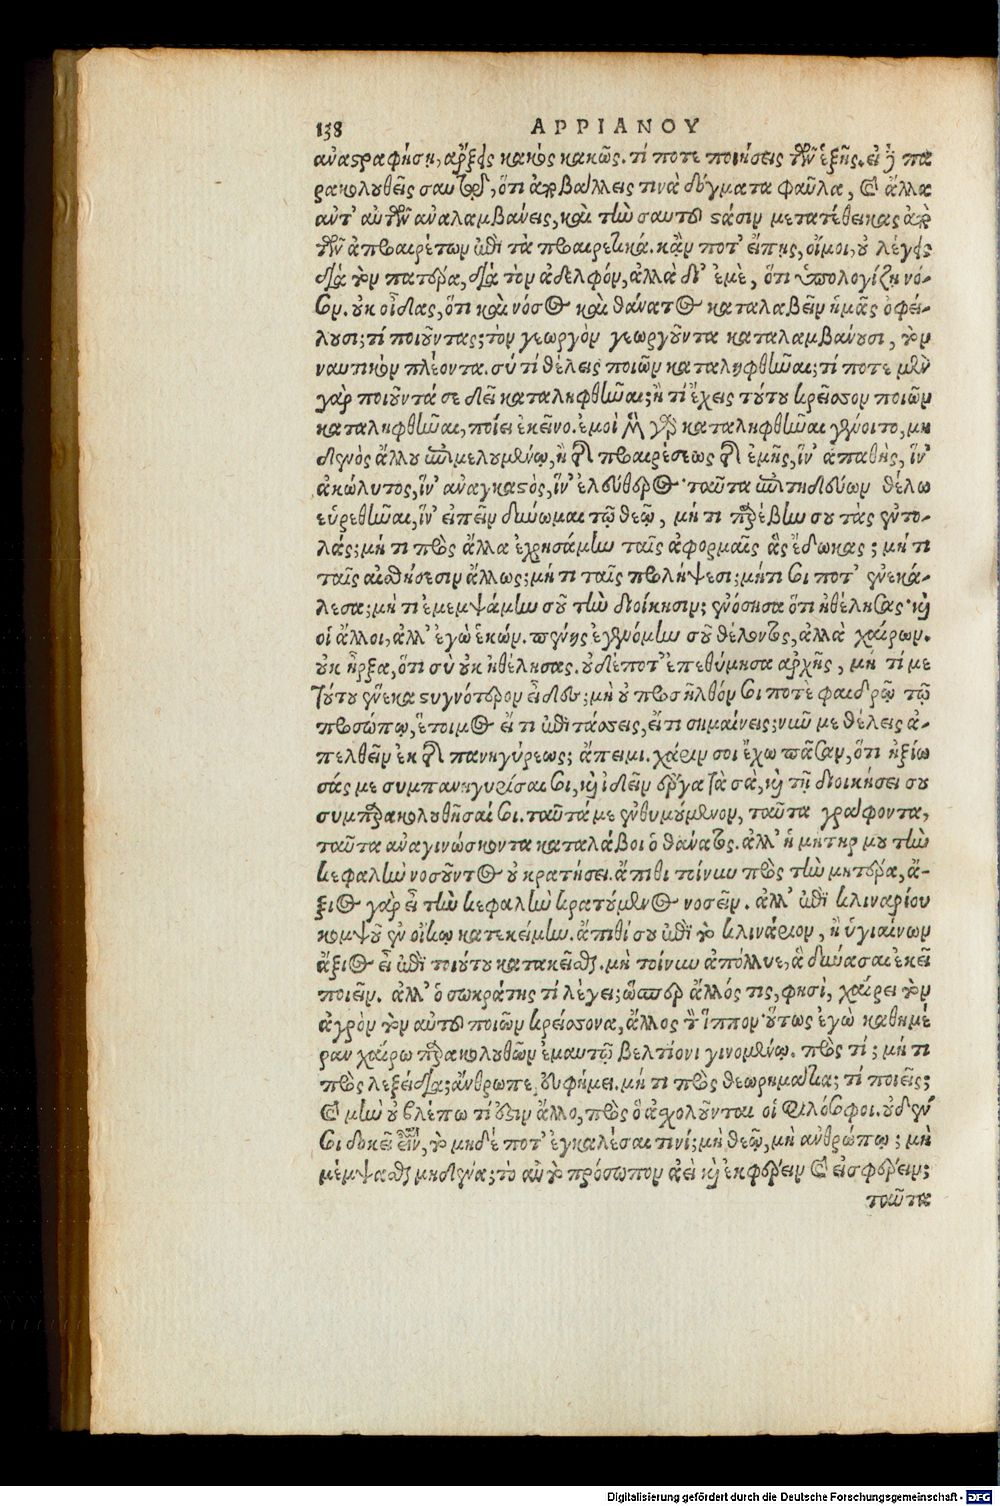 138 ΑΡΡΙΑΝΟΥ
αναστραφήση, άρξεις κακὸς κακῶς. τί ποτε ποιήσεις τῶν ἑξῆς. εἰ ἢ πα
ρακολουθεῖς σαυτῷ, ὅτι ἀποβάλλεις τινὰ δόγματα φαῦλα, καὶ ἄλλα
ἀντ' αὐτῶν ἀναλαμβάνεις, καὶ τὴν σαυτοῦ στάσιν μετατέθεικας ἀπὸ
τῶν ἀπροαιρέτων ἐπὶ τὰ προαιρετικά. κἄν ποτ' εἴπῃς, οἴμοι, οὐ λέγεις
διὰ τὸν πατέρα, διὰ τὸν ἀδελφόν, ἀλλὰ δι' ἐμὲ, ὅτι ὑπολογίζῃ νό-
σον. οὐκ οἶδας, ὅτι καὶ νόσος καὶ θάνατος καταλαβεῖν ἡμᾶς ὀφεί-
λουσι; τί ποιοῦντας; τὸν γεωργὸν γεωργοῦντα καταλαμβάνουσι, τὸν
ναυτικὸν πλέοντα. σὺ τί θέλεις ποιῶν καταληφθῆναι; τί ποτε μὲν
γὰρ ποιοῦντά σε δεῖ καταληφθῆναι; ἢ τί ἔχεις τούτου κρεῖσσον ποιῶν
καταληφθῆναι, ποίει ἐκεῖνο. ἐμοὶ μὲν γὰρ καταληφθῆναι γένοιτο, μη
δενὸς ἄλλου ἐπιμελουμένῳ, ἢ τῆς προαιρέσεως τῆς ἐμῆς, ἵν' ἀπαθὴς, ἵν'
ἀκώλυτος, ἵν' ἀναγκαστὸς, ἵν' ἐλεύθερος· ταῦτα ἐπιτηδεύων θέλω
εὑρεθῆναι, ἵν' εἰπεῖν δύνωμαι τῷ θεῷ, μή τι παρέβην σου τὰς ἐντο-
λάς; μή τι πρὸς ἄλλα ἐχρησάμην ταῖς ἀφορμαῖς ἃς ἔδωκας; μή τι
ταῖς αἰσθήσεσιν ἄλλως; μή τι ταῖς προλήψεσι; μήτι σοι ποτ' ἐνεκά-
λεσα; μή τι ἐμεμψάμην σοῦ τὴν διοίκησιν; ἐνόσησα ὅτι ἠθέλησας· καὶ
οἱ ἄλλοι, ἀλλ' ἐγὼ ἑκών. πένης ἐγενόμην σοῦ θέλοντος, ἀλλὰ χαίρων.
οὐκ ἦρξα, ὅτι σὺ οὐκ ἠθέλησας. οὐδέποτ' ἐπεθύμησα ἀρχῆς, μή τί με
τούτου ἕνεκα στυγνότερον εἶδες; μὴ οὐ προσῆλθόν σοι ποτὲ φαιδρῷ τῷ
προσώπῳ, ἕτοιμος εἴ τι ἐπιτάσσεις, εἴ τι σημαίνεις; νῦν με θέλεις ἀ-
πελθεῖν ἐκ τῆς πανηγύρεως; ἄπειμι. χάριν σοι ἔχω πᾶσαν, ὅτι ἠξίω
σάς με συμπανηγυρίσαι σοι, καὶ ἰδεῖν ἔργα τὰ σὰ, καὶ τῇ διοικήσει σου
συμπαρακολουθῆσαί σοι. ταῦτά με ἐνθυμούμενον, ταῦτα γράφοντα,
ταῦτα ἀναγινώσκοντα καταλάβοι ὁ θάνατος. ἀλλ' ἡ μήτηρ μου τὴν
κεφαλὴν νοσοῦντος οὐ κρατήσει. ἄπιθι τοίνυν πρὸς τὴν μητέρα, ἄ-
ξιος γὰρ εἶ τὴν κεφαλὴν κρατούμενος νοσεῖν. ἀλλ' ἐπὶ κλιναρίου
κομψοῦ ἐν οἴκῳ κατεκείμην. ἄπιθί σου ἐπὶ τὸ κλινάριον, ἢ ὑγιαίνων
ἄξιος εἶ ἐπὶ τοιούτου κατακεῖσθαι. μὴ τοίνυν ἀπόλλυε, ἃ δύνασαι ἐκεῖ
ποιεῖν. ἀλλ' ὁ σωκράτης τί λέγει; ὥσπερ ἄλλός τις, φησὶ, χαίρει τὸν
ἀγρὸν τὸν αὑτοῦ ποιῶν κρείσσονα, ἄλλος τὸν ἵππον· οὕτως ἐγὼ καθημέ
ραν χαίρω παρακολουθῶν ἐμαυτῷ βελτίονι γινομένῳ. πρὸς τί; μή τι
πρὸς λεξείδια; ἄνθρωπε, εὐφήμει. μή τι πρὸς θεωρημάτια; τί ποιεῖς;
καὶ μὴν οὐ βλέπω τί ἐστιν ἄλλο, πρὸς ὃ ἀσχολοῦνται οἱ φιλόσοφοι. οὐδέν
σοι δοκεῖ εἶναι, τὸ μηδέ ποτ' ἐγκαλέσαι τινί; μὴ θεῷ, μὴ ἀνθρώπῳ; μὴ
μέμψασθαι μηδένα; τὸ αὐτὸ πρόσωπον ἀεὶ καὶ ἐκφέρειν καὶ εἰσφέρειν;
ταῦτα
Digitalisierung gefördert durch die Deutsche Forschungsgemeinschaft - DFG